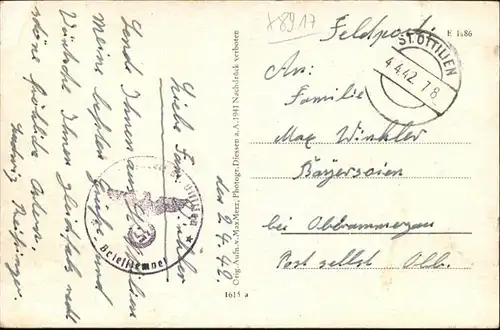 x8917
Feldpost.
E 1186
ST. OTTILIEN
4.4.42. 7-8
An:
Familie
Max Winkler
Bayersoien
bei Oberammergau
Post selbst Obb.
Orig.-Aufn. v. Max Merz, Photogr. Diessen a. A. 1941 Nachdruck verboten
1615 a
den 2.4.42.
Liebe Fam. Winkler
Sende Ihnen aus Ottilien
meine besten Grüße und
Wünsche Ihnen gleichfalls recht
schöne fröhliche Ostern.
Ludwig
Briefstempel